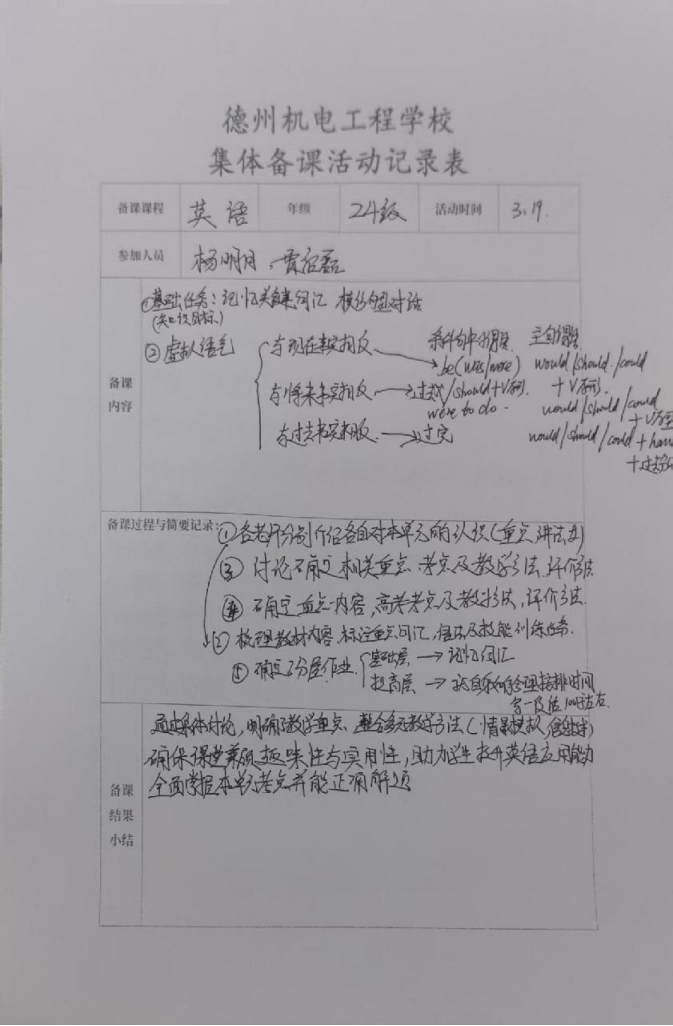 德州机电工程学校
集体备课活动记录表
备课课程 英语 年级 24级 活动时间 3.19.
参加人员 杨明月
备课内容
①基础任务：记忆关键词汇 模仿句型对话
(知识目标)
②虚拟语气
条件句中谓语 主句谓语
与现在事实相反 → be(was/were) would/should/could
+V原形
与将来事实相反 → 过去式/should+V原形 would/should/could
were to do. +V原型
与过去事实相反 → 过完 would/should/could + have
备课过程与简要记录：①各老师分别介绍各自对本单元的认识(重点、讲法等)
③ 讨论确定相关重点、考点及教学方法、评价方法
④ 确定重点内容，高考考点及教学方法，评价方法.
② 梳理教材内容，标注重点词汇，语法及技能训练任务.
⑤ 确定分层作业 基础层 → 记忆词汇
提高层 → 就自己如何合理安排时间
写一段话 100词左右
备课结果小结
通过集体讨论，明确了教学重点，整合多元教学方法(情景模拟,
确保课堂兼顾趣味性与实用性，助力学生提升英语应用能力
全面掌握本单元考点并能正确解题